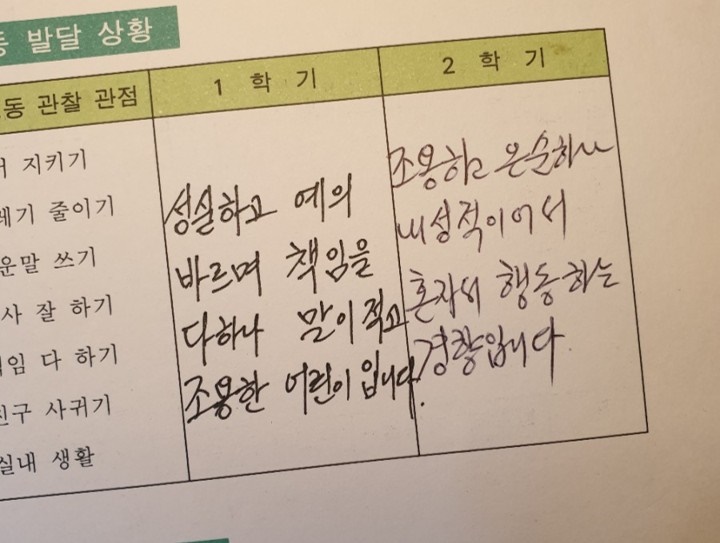 동 발달 상황
동 관찰 관점 1 학 기 2 학 기
지키기
레기 줄이기
운말 쓰기
사 잘 하기
임 다 하기
친구 사귀기
실내 생활
성실하고 예의
바르며 책임을
다하나 말이 적고
조용한 어린이입니다.
조용하고 온순하나
내성적이어서
혼자서 행동하는
경향입니다.